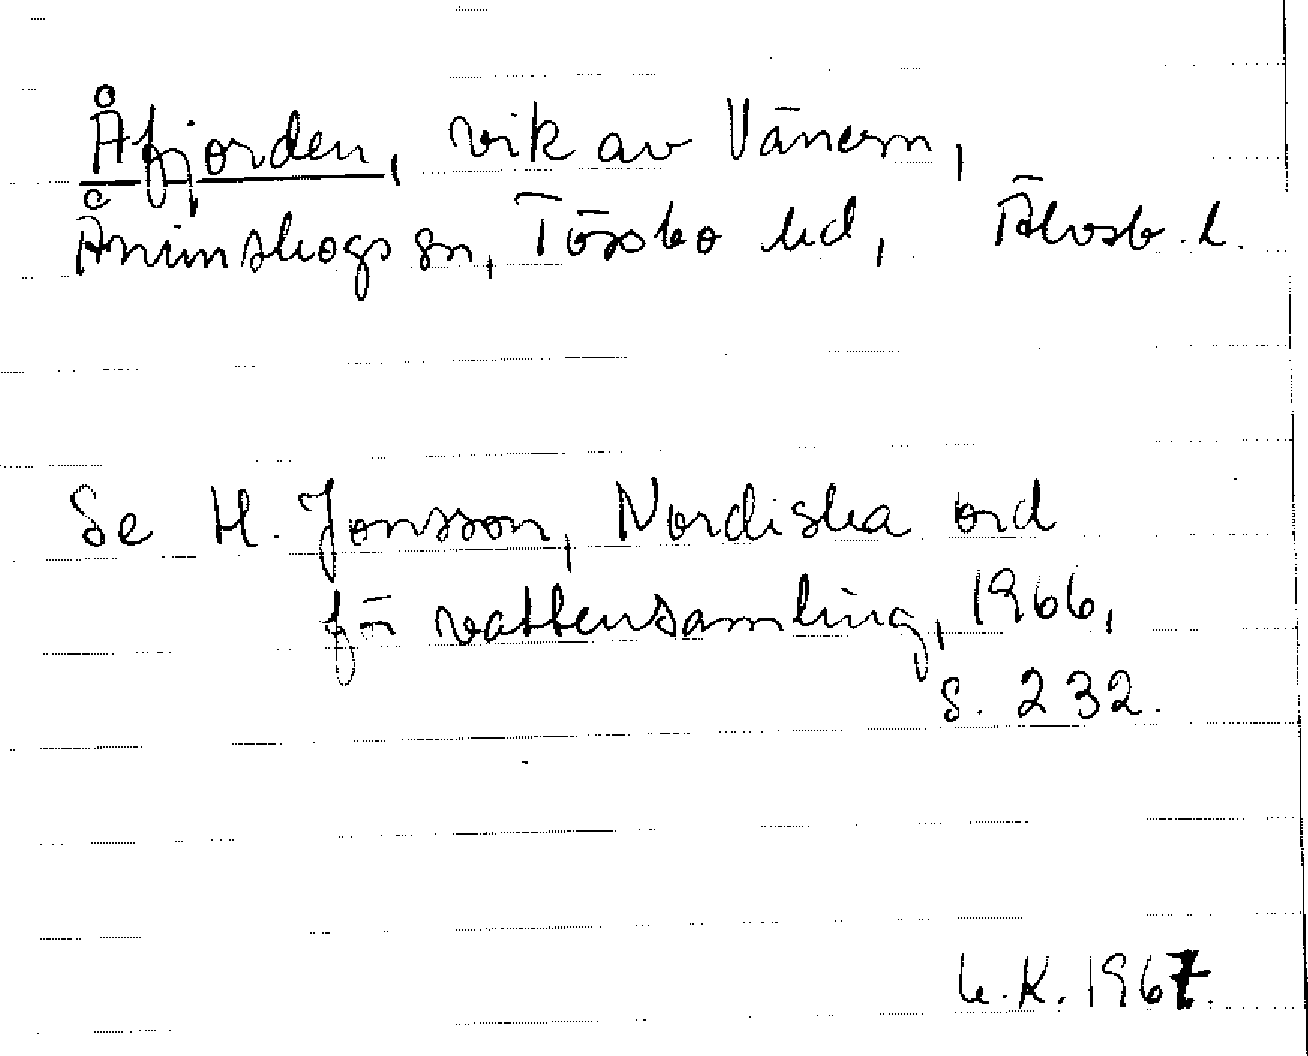 Åfjorden, vik av Vänern,
Ånimskogs sn, Tössbo hd, Älvsb. l.
Se H. Jonsson, Nordiska ord
för vattensamling, 1966,
s. 232.
K. 1967.